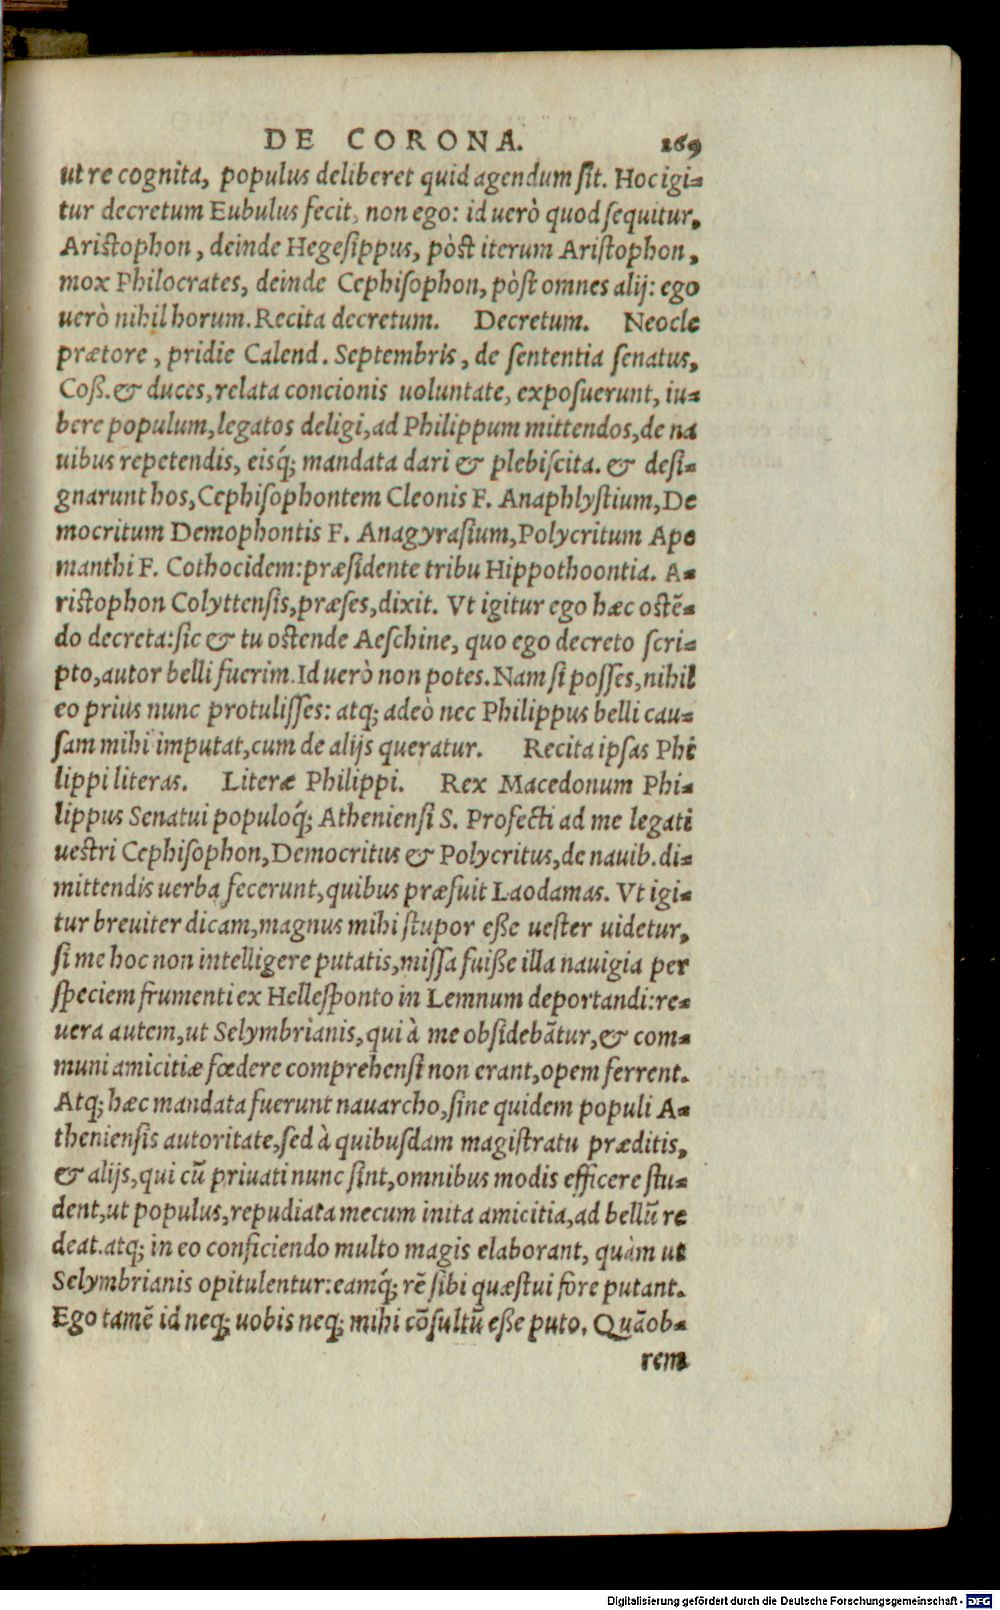 DE CORONA. 269
ut re cognita, populus deliberet quid agendum ſit. Hoc igi-
tur decretum Eubulus fecit, non ego: id uerò quod ſequitur,
Ariſtophon, deinde Hegeſippus, pòſt iterum Ariſtophon,
mox Philocrates, deinde Cephiſophon, pòſt omnes alij: ego
uerò nihil horum. Recita decretum. Decretum. Neocle
prætore, pridie Calend. Septembris, de ſententia ſenatus,
Coß. & duces, relata concionis uoluntate, expoſuerunt, iu-
bere populum, legatos deligi, ad Philippum mittendos, de na
uibus repetendis, eisq́; mandata dari & plebiſcita. & deſi-
gnarunt hos, Cephiſophontem Cleonis F. Anaphlyſtium, De
mocritum Demophontis F. Anagyraſium, Polycritum Ape
manthi F. Cothocidem: præſidente tribu Hippothoontia. A-
riſtophon Colyttenſis, præſes, dixit. Vt igitur ego hæc oſtē-
do decreta: ſic & tu oſtende Aeſchine, quo ego decreto ſcri-
pto, autor belli fuerim. Id uerò non potes. Nam ſi poſſes, nihil
eo prius nunc protuliſſes: atq; adeò nec Philippus belli cau-
ſam mihi imputat, cum de alijs queratur. Recita ipſas Phi
lippi literas. Literæ Philippi. Rex Macedonum Phi-
lippus Senatui populoq́; Athenienſi S. Profecti ad me legati
ueſtri Cephiſophon, Democritus & Polycritus, de nauib. di-
mittendis uerba fecerunt, quibus præfuit Laodamas. Vt igi-
tur breuiter dicam, magnus mihi ſtupor eße ueſter uidetur,
ſi me hoc non intelligere putatis, miſſa fuiße illa nauigia per
ſpeciem frumenti ex Helleſponto in Lemnum deportandi: re-
uera autem, ut Selymbrianis, qui à me obſidebātur, & com-
muni amicitiæ fœdere comprehenſi non erant, opem ferrent.
Atq; hæc mandata fuerunt nauarcho, ſine quidem populi A-
thenienſis autoritate, ſed à quibuſdam magiſtratu præditis,
& alijs, qui cū priuati nunc ſint, omnibus modis efficere ſtu-
dent, ut populus, repudiata mecum inita amicitia, ad bellū re
deat. atq; in eo conficiendo multo magis elaborant, quàm ut
Selymbrianis opitulentur: eamq́; rē ſibi quæſtui fore putant.
Ego tamē id neq; uobis neq; mihi cōſultū eße puto. Quāob-
rem
Digitalisierung gefördert durch die Deutsche Forschungsgemeinschaft - DFG